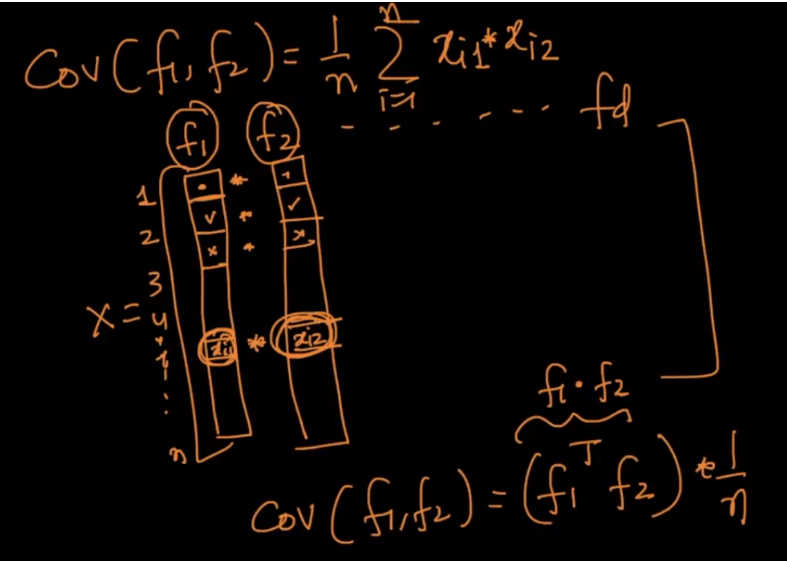 Cov(f₁, f₂) = 1/n ∑ᵢ₌₁ⁿ xᵢ₁ * xᵢ₂
f₁ f₂ - - - - - - - fd
1 • * •
✓ * ✓
2 x * x
3
X = 4
xᵢ₁ * xᵢ₂
f₁ • f₂
n
Cov(f₁, f₂) = (f₁ᵀ f₂) * 1/n